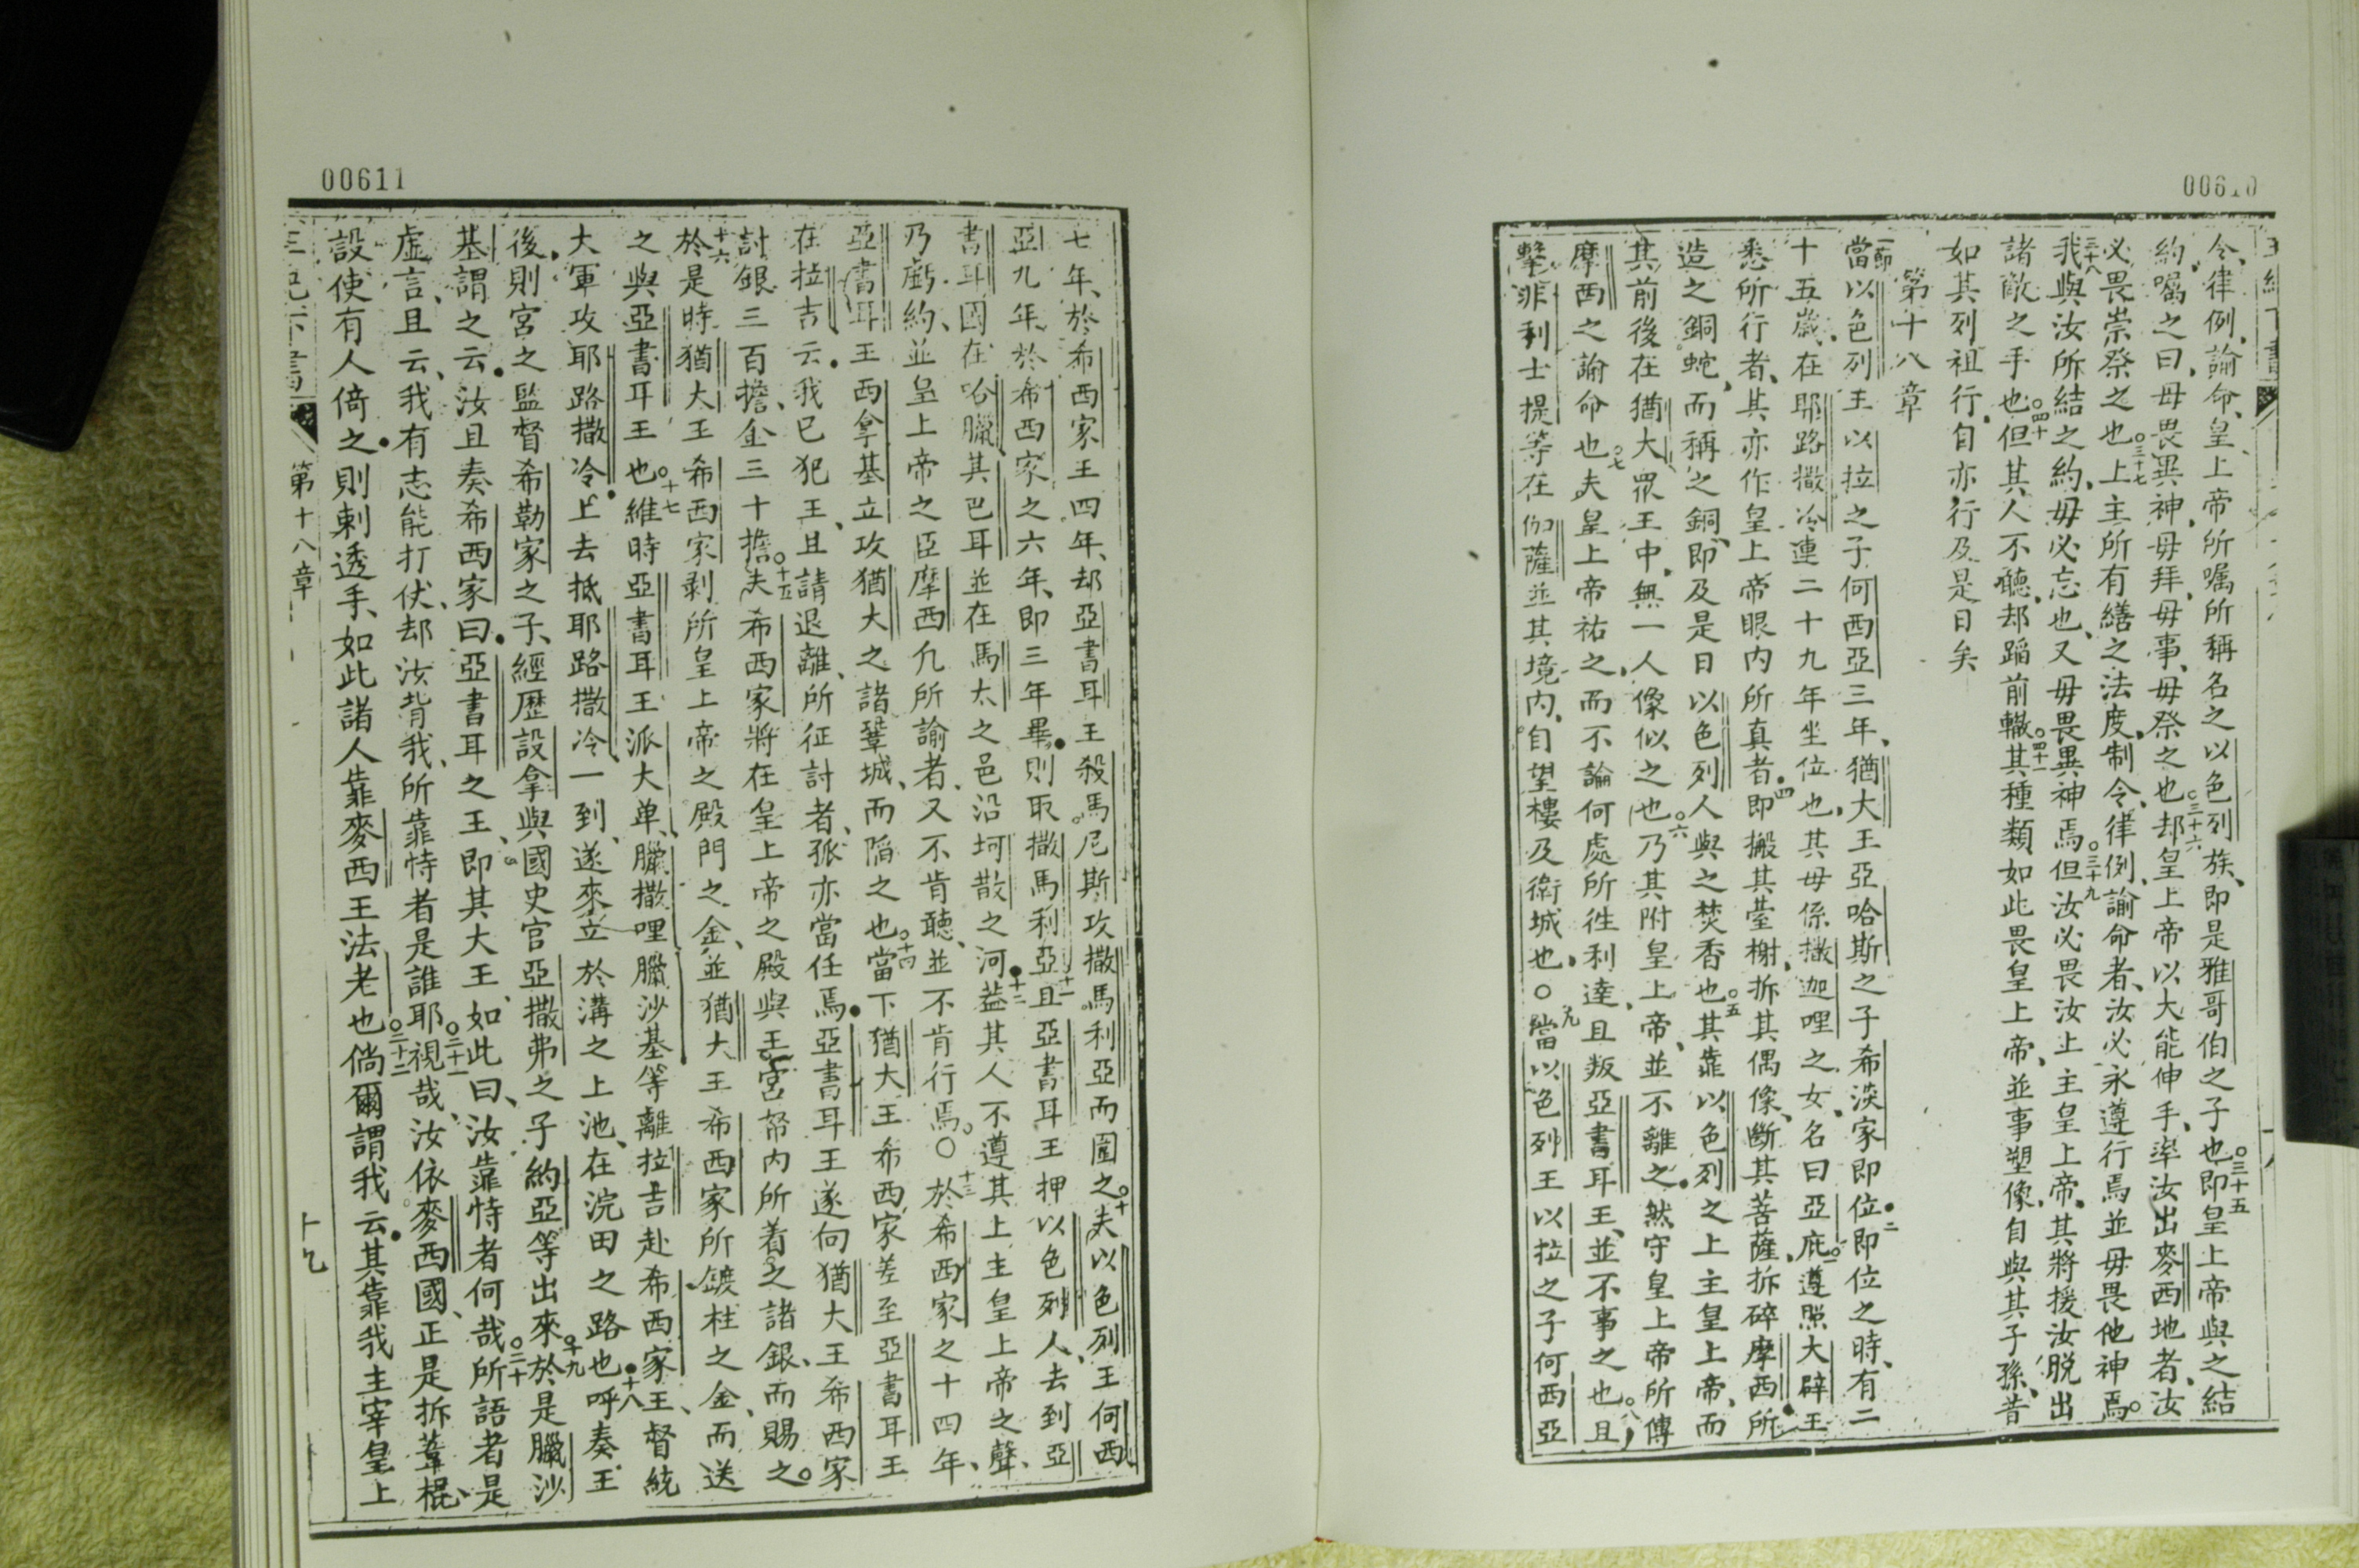 00610
令、律例、諭命、皇上帝所囑所稱名之以色列族、即是雅哥伯之子也。三十五即皇上帝與之結
約、囑之曰、毋畏異神、毋拜、毋事、毋祭之也。三十六却皇上帝以大能伸手、率汝出麥西地者、汝
必畏崇祭之也。三十七上主所有繕之法度、制令、律例、諭命者、汝必永遵行焉、並毋畏他神焉。
三十八我與汝所結之約、毋必忘也、又毋畏異神焉。三十九但汝必畏汝上主皇上帝、其將援汝脫出
諸敵之手也。四十但其人不聽、却蹈前轍。四十一其種類如此畏皇上帝、並事塑像、自與其子孫、昔
如其列祖行、自亦行及是日矣
第十八章
一節當以色列王以拉之子何西亞三年、猶大王亞哈斯之子希淡家即位。二即位之時、有二
十五歲、在耶路撒冷連二十九年坐位也、其母係撒迦哩之女、名曰亞庇。三遵照大辟王
悉所行者、其亦作皇上帝眼內所真者。四即搬其臺榭、拆其偶像、斷其菩薩、拆碎摩西所
造之銅蛇、而稱之銅、即及是日以色列人與之焚香也。五其靠以色列之上主皇上帝、而
其前後在猶大眾王中、無一人像似之也。六乃其附皇上帝、並不離之、然守皇上帝所傳
摩西之諭命也。七夫皇上帝祐之、而不論何處所徃利達、且叛亞書耳王、並不事之也。八且
擊非利士提等在伽薩並其境內、自望樓及衛城也。○九當以色列王以拉之子何西亞
00611
七年、於希西家王四年、却亞書耳王殺馬尼斯攻撒馬利亞而圍之。十夫以色列王何西
亞九年、於希西家之六年、即三年畢、則取撒馬利亞。十一且亞書耳王押以色列人、去到亞
書耳國在哈臘其巴耳並在馬太之邑沿坷散之河。十二益其人不遵其上主皇上帝之聲、
乃虧約、並皇上帝之臣摩西凢所諭者、又不肯聽、並不肯行焉。○十三於希西家之十四年、
亞書耳王西拿基立攻猶大之諸鞏城、而陷之也。十四當下猶大王希西家差至亞書耳王
在拉吉云、我已犯王、且請退離、所征討者、孤亦當任焉、亞書耳王遂向猶大王希西家
討銀三百擔、金三十擔。十五夫希西家將在皇上帝之殿與王宮帑內所着之諸銀、而賜之。
十六於是時猶大王希西家剥所皇上帝之殿門之金、並猶大王希西家所鍍柱之金、而送
之與亞書耳王也。十七維時亞書耳王派大单、臘撒哩臘沙基等離拉吉赴希西家王、督統
大軍攻耶路撒冷、上去抵耶路撒冷一到、遂來立於溝之上池、在浣田之路也。十八呼奏王
後、則宮之監督希勒家之子、經歷設拿與國史官亞撒弗之子約亞等出來。十九於是臘沙
基謂之云、汝且奏希西家曰、亞書耳之王、即其大王、如此曰、汝靠恃者何哉。二十所語者是
虛言、且云、我有志能打伏、却汝背我、所靠恃者是誰耶。二十一視哉、汝依麥西國、正是拆葦棍、
設使有人倚之、則刺透手、如此諸人靠麥西王法老也。二十二倘爾謂我云、其靠我主宰皇上
第十八章
十九